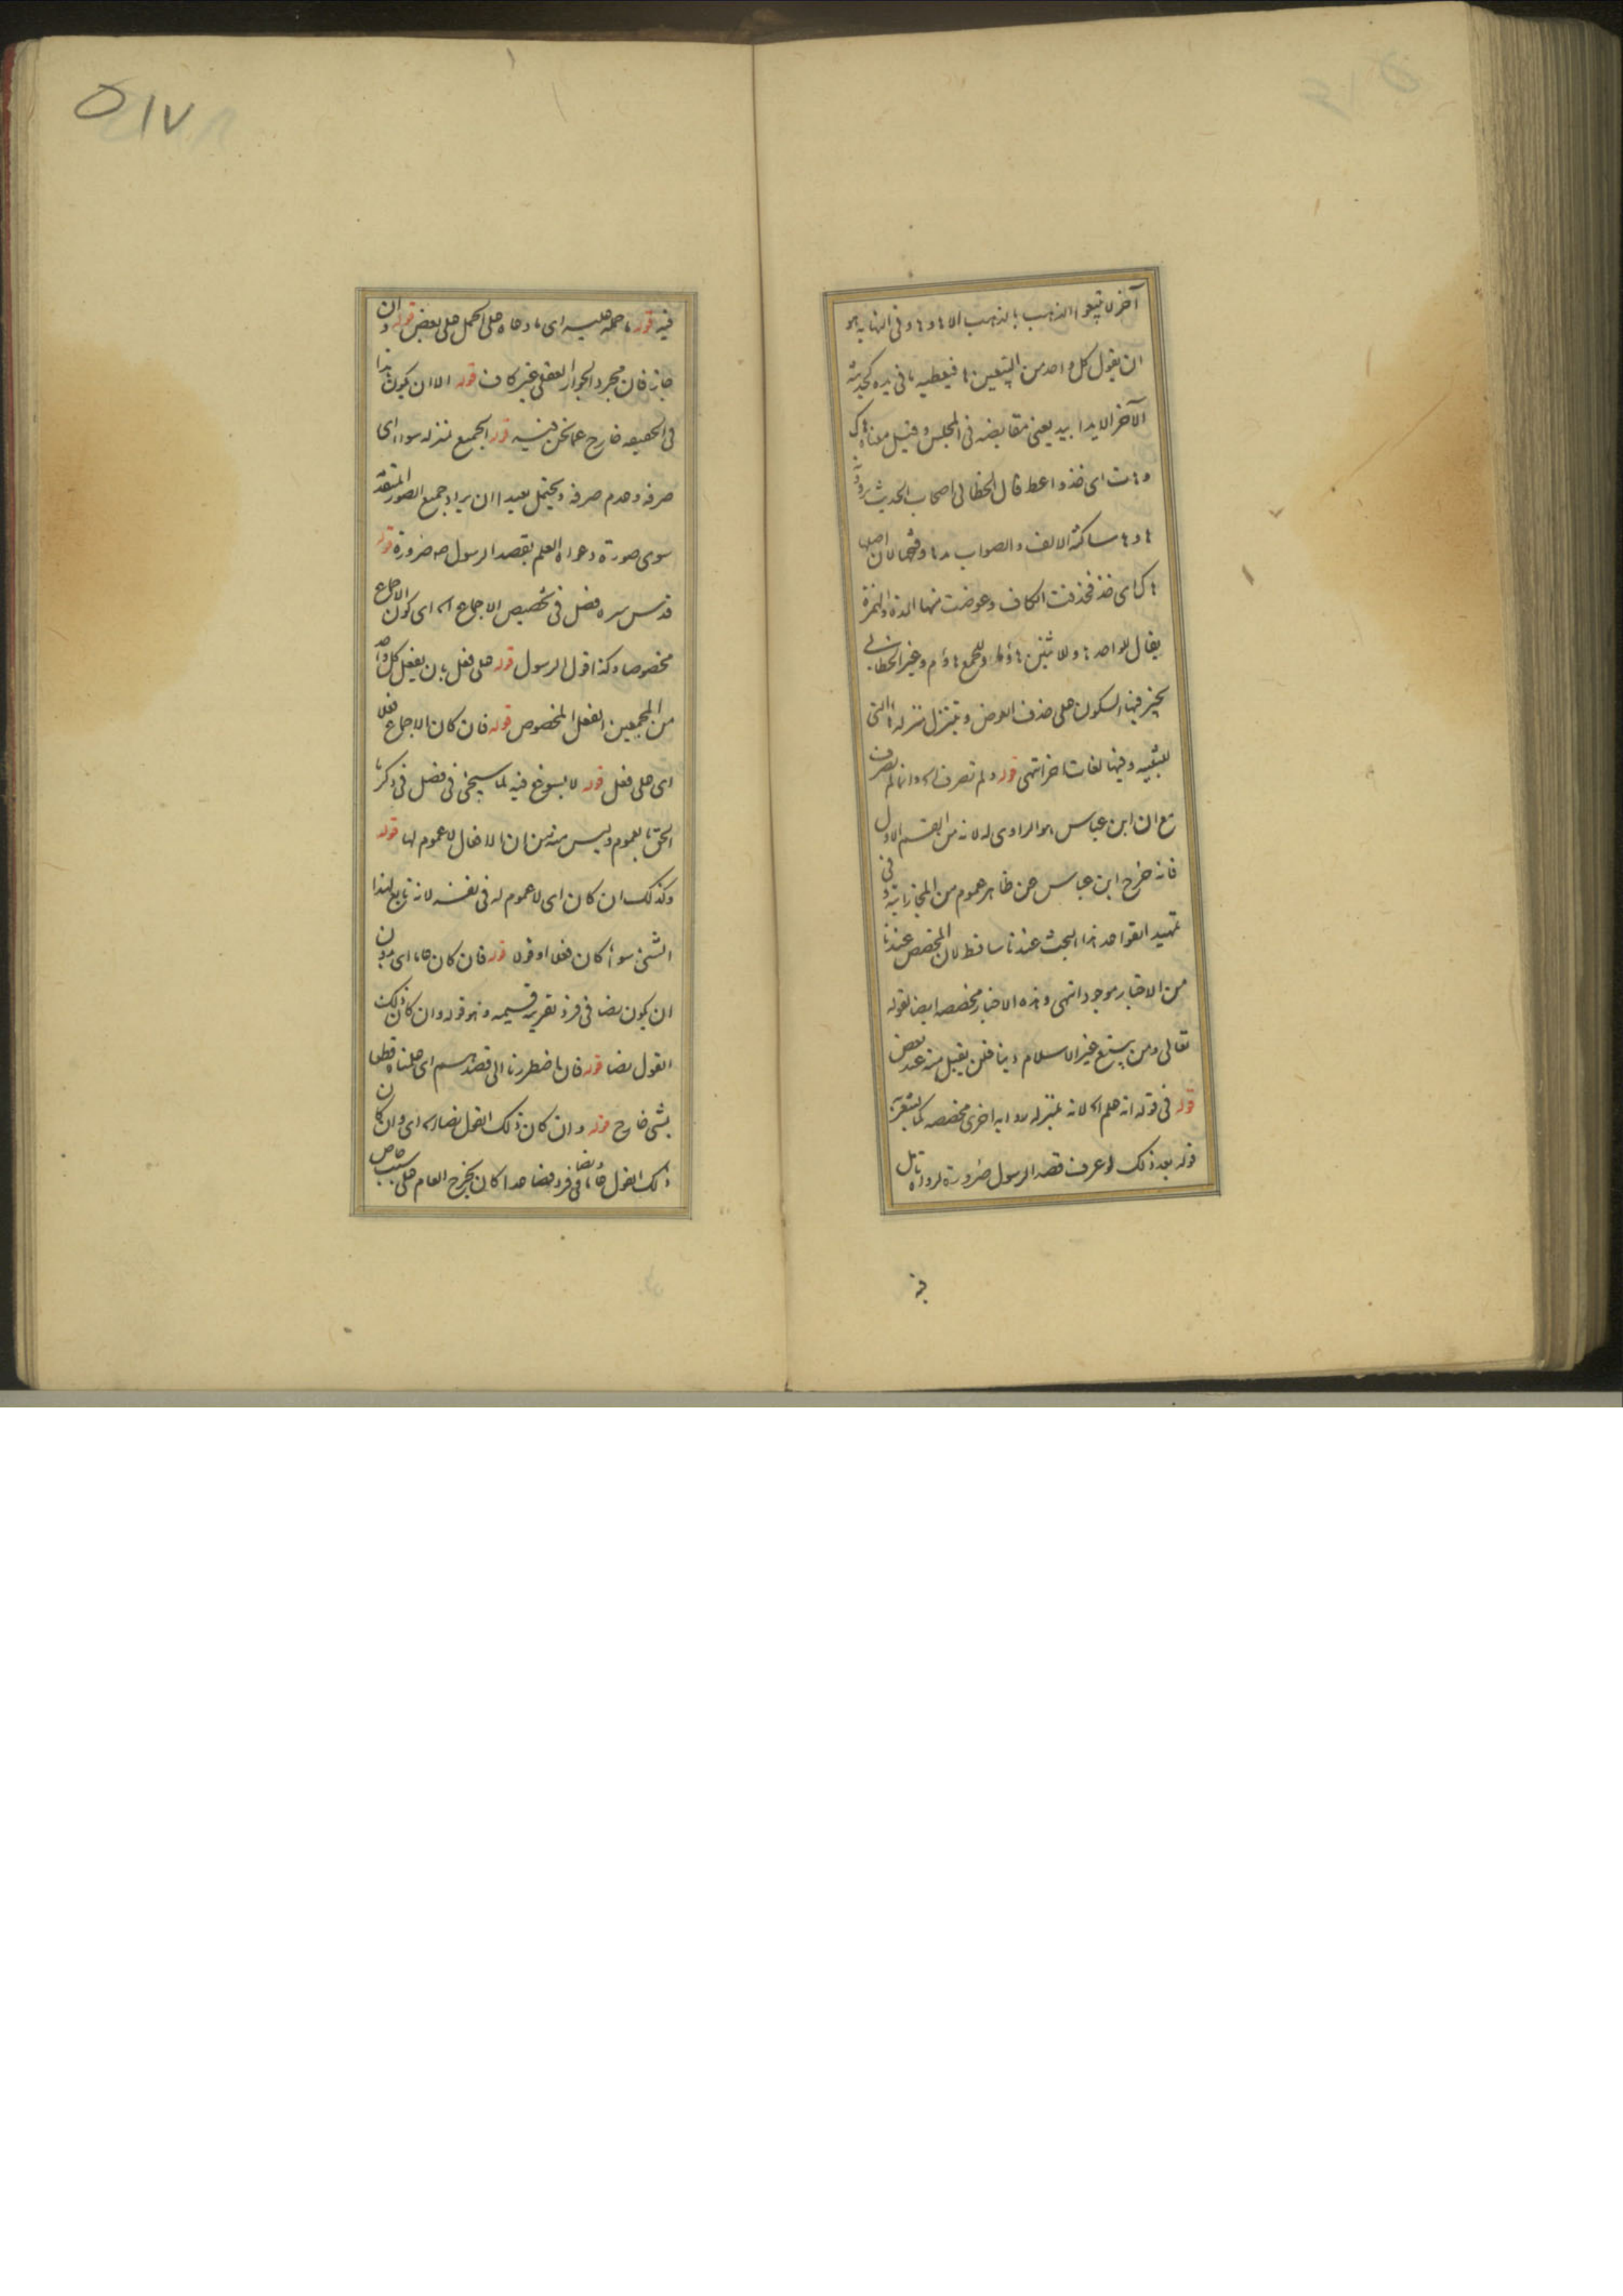 آخر لا تبيعوا الذهب بالذهب الا ها وها وفى النهايه هو
ان يقول كل واحد من البيعين ها فيعطيه ما فى يده كحديثه
الآخر الا يدا بيد يعنى مقابضه فى المجلس وقيل معناه هاك
وهات اى خذ واعط قال الخطابى اصحاب الحديث يروونه
ها وها ساكنة الالف والصواب مدها وفتحها لان اصلها
هاك اى خذ فحذفت الكاف وعوضت منها المدة والهمزة
يقال للواحد هاء وللاثنين هاؤما وللجمع هاؤم وغير الخطابى
يجيز فيها السكون على حذف العوض ويتنزل منزله ها التى
للتنبيه وفيها لغات اخر انتهى قوله ولم تصرف اه وانما لم تصرف
مع ان ابن عباس هو الراوى له لانه من القسم الاول
فانه خرج ابن عباس عن ظاهر عموم من المجاز انتهى وفى
تمهيد القواعد هذا البحث عندنا ساقط لان المخصص عندنا
من الاخبار موجود انتهى وهذه الاخبار مخصصه ايضا لقوله
تعالى ومن يبتغ غير الاسلام دينا فلن يقبل منه عند بعض
قوله فى قوله انه علم اه لانه بمنزله رواية اخرى مخصصه كما يشعر به
قوله بعد ذلك لو عرف قصد الرسول ضرورة لرواه تامل
فيه
٥١٧
فيه قوله ما حمله عليه اى ما دعاه على الحمل على بعض قوله وان
جاز فان مجرد الجواز العقلى غير كاف قوله الا ان يكون هذا
فى الحقيقه خارج عما نحن فيه قوله الجميع منزله سواء اى
صرفه وعدم صرفه ويحتمل بعيدا ان يراد جميع الصور المتقدمة
سوى صورة دعواه العلم بقصد الرسول ص ضرورة قوله
قدس سره فصل فى تخصيص الاجماع اه اى كون الاجماع
مخصوصا وكذا قول الرسول قوله على فعل بان يفعل كل واحد
من المجمعين الفعل المخصوص قوله فان كان الاجماع فعلا
اى على فعل قوله لا يسوغ فيه لما سيجئ فى فصل فى ذكر ما
الحق بالعموم وليس منه من ان الافعال لا عموم لها قوله
وكذلك ان كان اى لا عموم له فى نفسه لانه تابع لهذا
الشئ سواء كان فعلا او قولا قوله فان كان عاما اى بدون
ان يكون نصا فى فرد بقرينه قسيمه وهو قوله وان كان ذلك
القول نصا قوله فان اضطررنا الى قصدهم اى علمناه قطعا
بشئ خارج قوله وان كان ذلك القول نصا اه اى وان كان
ذلك القول عاما نصا فى فرد فصاعدا كان يخرج العام على سبب خاص